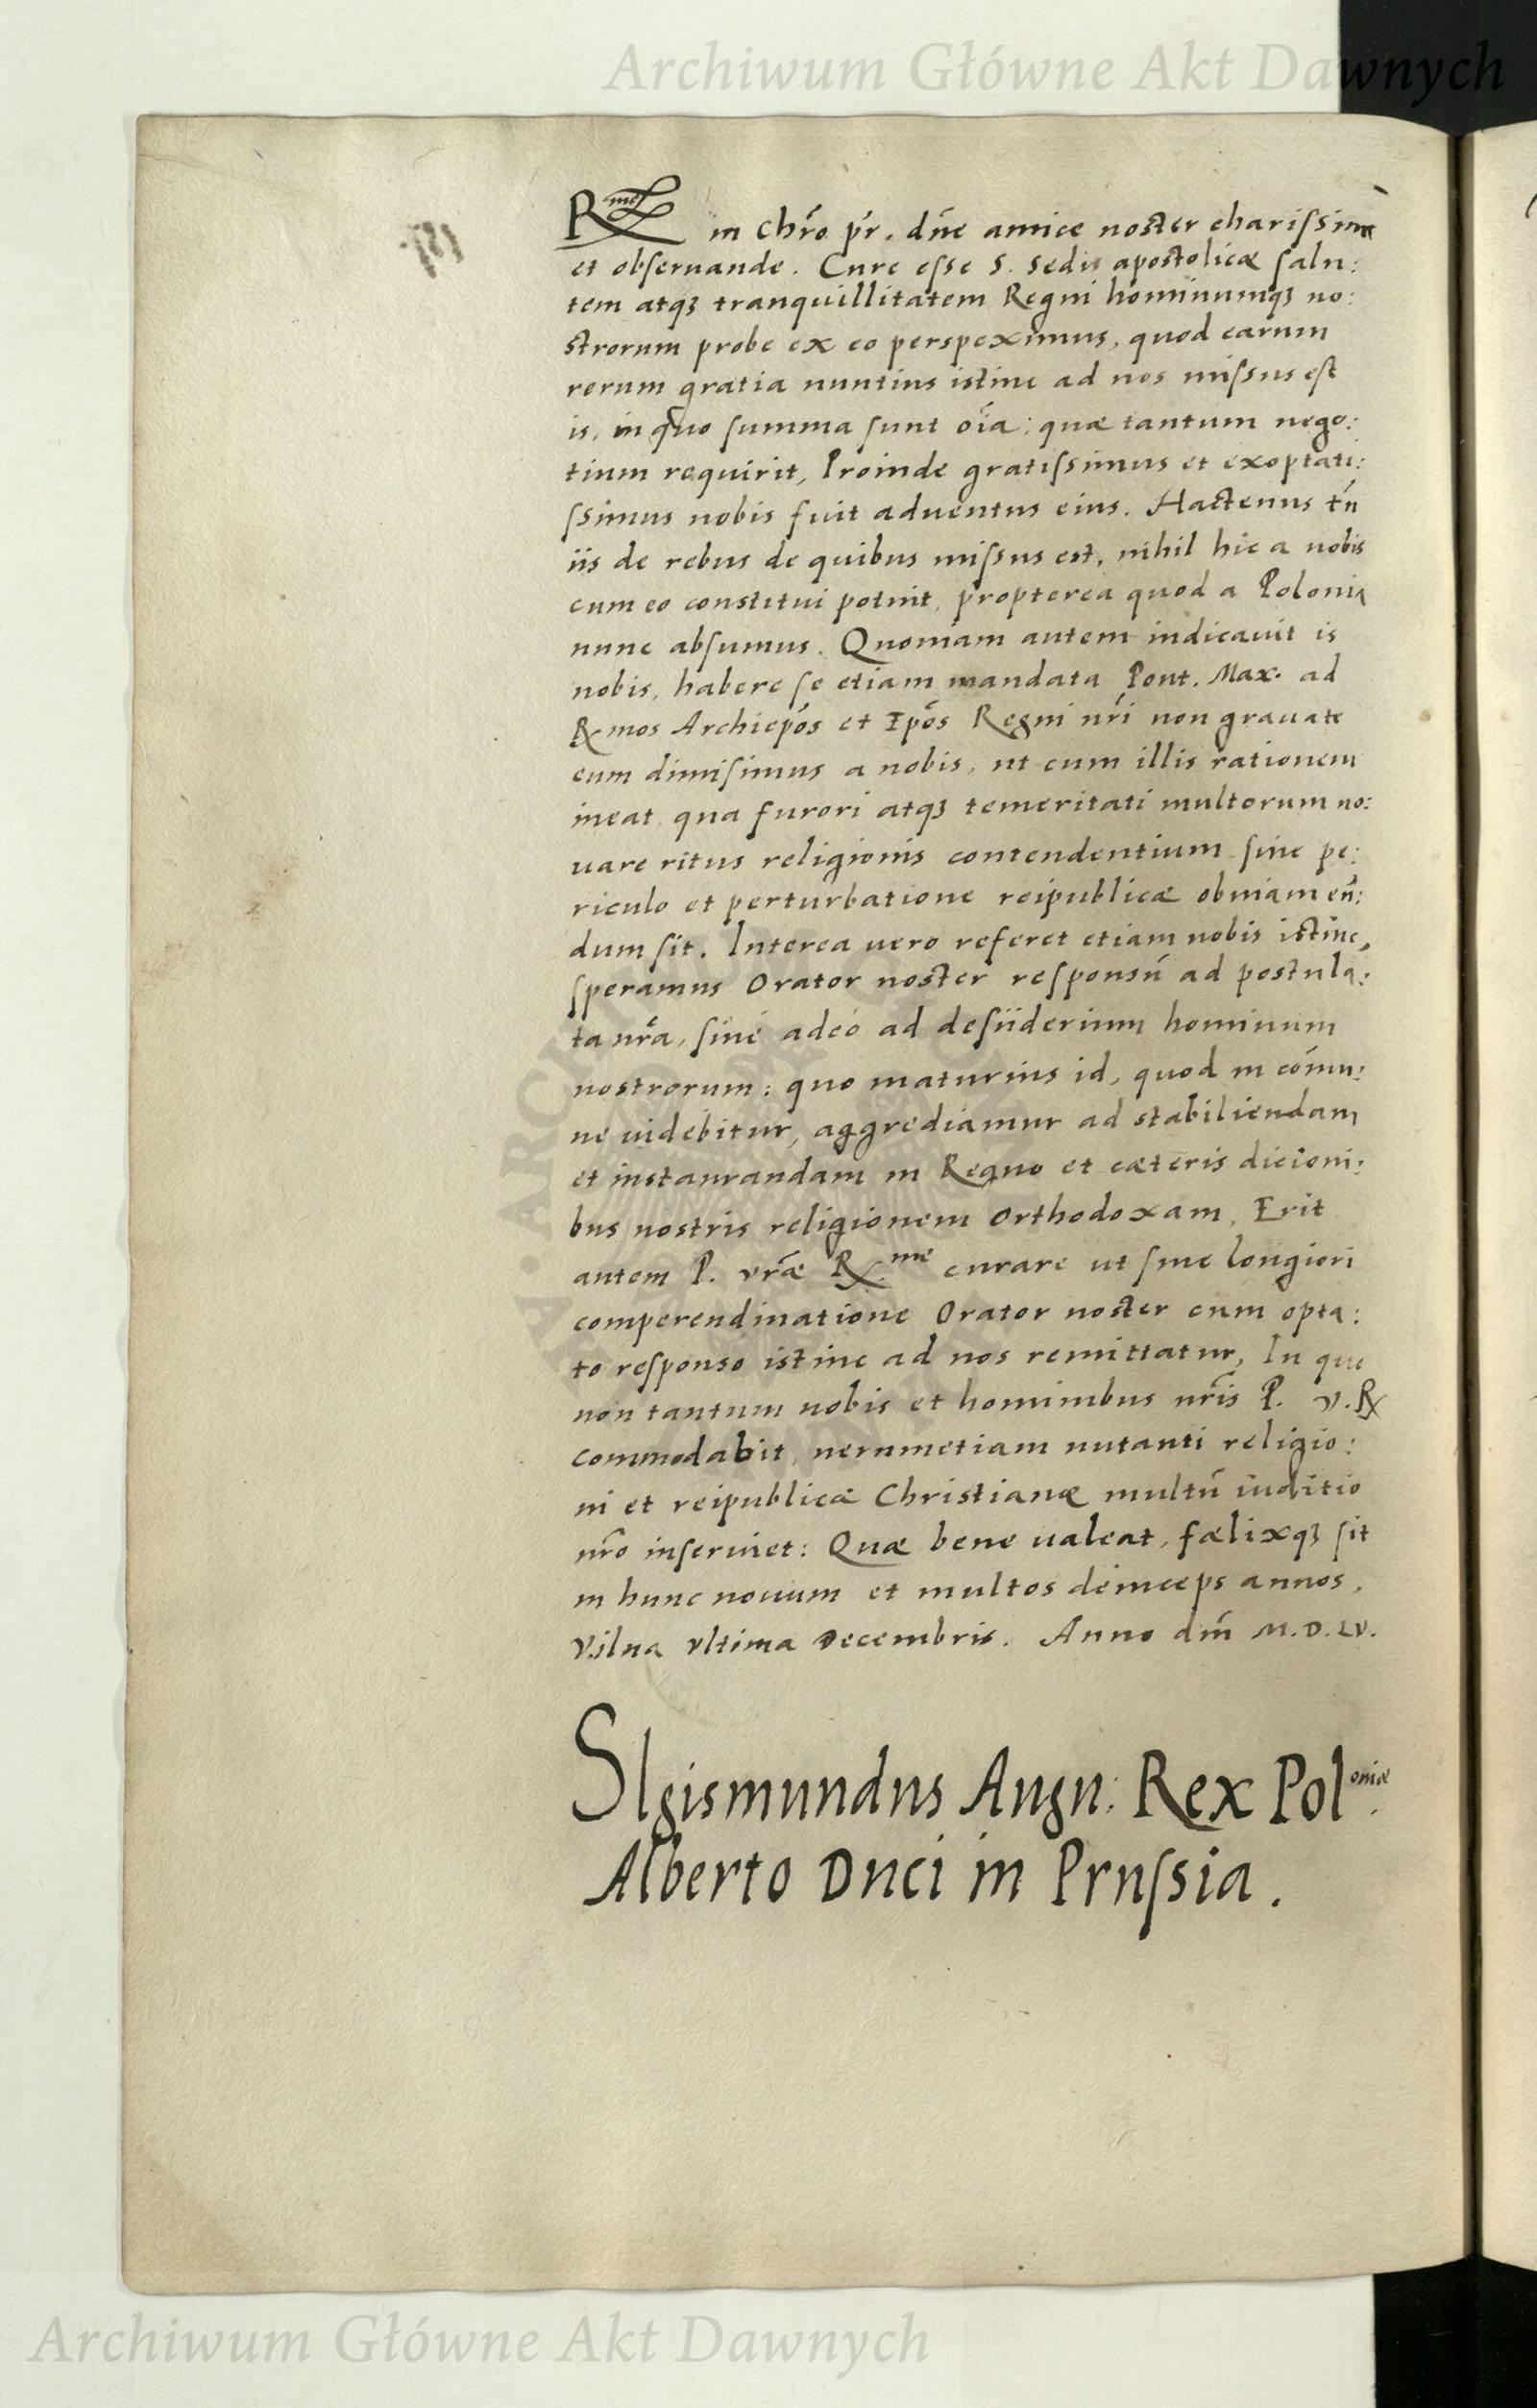 Archiwum Główne Akt Dawnych
R<sup>me</sup> in Chro pr. dne amice noster charissime
et obseruande. Cure esse S. Sedis apostolicæ salu:
tem atq3 tranquillitatem Regni hominumq3 no:
strorum probe ex eo perspeximus, quod earum
rerum gratia nuntius istinc ad nos missus est
is, in quo summa sunt oia: quæ tantum nego:
tium requirit, Proinde gratissimus et exoptati:
ssimus nobis fuit aduentus eius. Hactenus tn
iis de rebus de quibus missus est, nihil hic a nobis
cum eo constitui potuit, propterea quod a Polonia
nunc absumus. Quoniam autem indicauit is
nobis, habere se etiam mandata Pont. Max. ad
Rmos Archiepos et Epos Regni nri non grauate
eum dimisimus a nobis, ut cum illis rationem
ineat qua furori atq3 temeritati multorum no:
uare ritus religionis contendentium sine pe:
riculo et perturbatione reipublicæ obuiam eñ:
dum sit. Interea uero referet etiam nobis istinc,
speramus Orator noster responsũ ad postula:
ta nra, sine adeo ad desiiderium hominum
nostrorum: quo maturius id, quod in cómu:
ne uidebitur, aggrediamur ad stabiliendam
et instaurandam in Regno et cæteris dicioni:
bus nostris religionem Orthodoxam, Erit
autem P. vræ R.<sup>me</sup> curare ut sine longiori
comperendinatione Orator noster cum opta:
to responso istinc ad nos remittatur, In quo
non tantum nobis et hominibus nris P. v. R
commodabit, uerumetiam nutanti religio:
ni et reipublicæ Christianæ multũ iuditio
nro inseruiet: Quæ bene ualeat, fælixq3 sit
in hunc nouum et multos deinceps annos,
Vilna vltima Decembris. Anno dñi M.D.LV.
SIgismundus Augu: Rex Pol<sup>oniæ</sup>.
Alberto Duci in Prussia.
Archiwum Główne Akt Dawnych